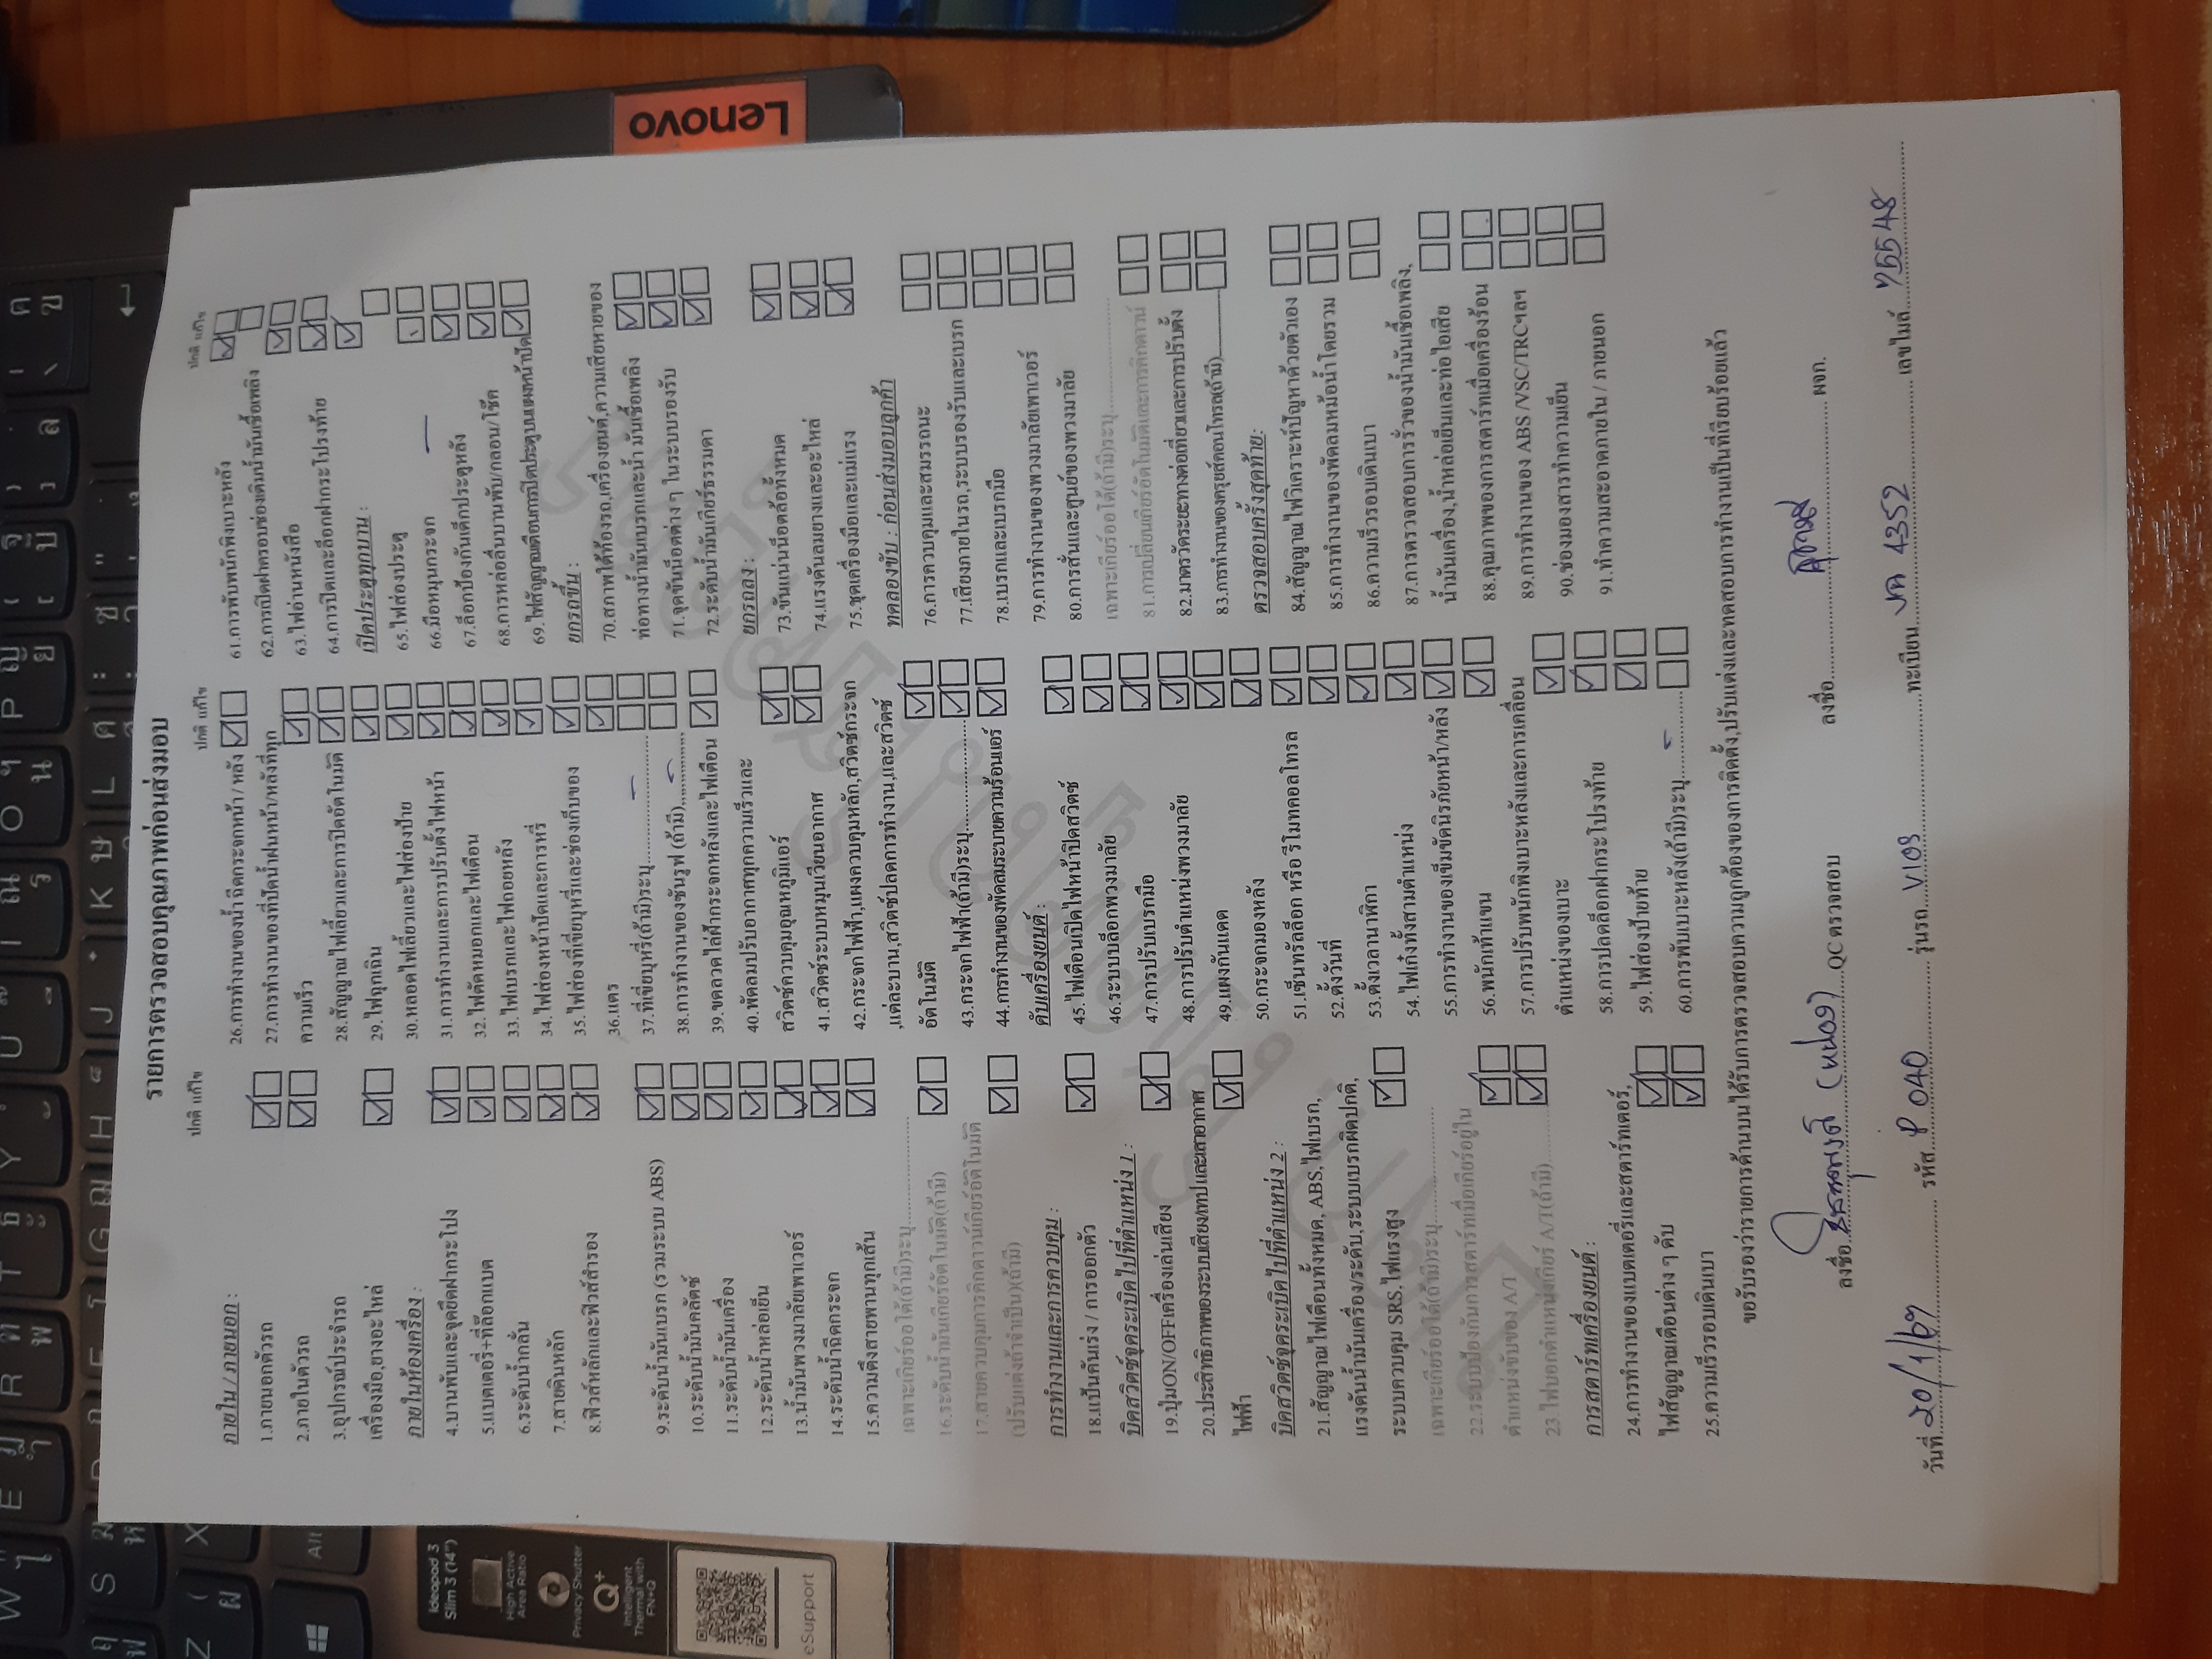 รายการตรวจสอบคุณภาพก่อนส่งมอบ
ปกติ แก้ไข
ภายใน / ภายนอก :
1.ภายนอกตัวรถ
2.ภายในตัวรถ
3.อุปกรณ์ประจำรถ
เครื่องมือ,ยางอะไหล่
ภายในห้องเครื่อง :
4.บานพับและจุดยึดฝากระโปง
5.แบตเตอรี่+ที่ล็อกแบต
6.ระดับน้ำกลั่น
7.สายดินหลัก
8.ฟิวส์หลักและฟิวส์สำรอง
9.ระดับน้ำมันเบรก (รวมระบบ ABS)
10.ระดับน้ำมันคลัตช์
11.ระดับน้ำมันเครื่อง
12.ระดับน้ำหล่อเย็น
13.น้ำมันพวงมาลัยพาเวอร์
14.ระดับน้ำฉีดกระจก
15.ความตึงสายพานทุกเส้น
เฉพาะเกียร์ออโต้(ถ้ามี)ระบุ
16.ระดับน้ำมันเกียร์อัตโนมัติ(ถ้ามี)
17.สายควบคุมการคิกดาวน์เกียร์อัตโนมัติ
(ปรับแต่งถ้าจำเป็น)(ถ้ามี)
การทำงานและการควบคุม :
18.แป้นคันเร่ง / การออกตัว
บิดสวิตช์จุดระเบิดไปที่ตำแหน่ง 1 :
19.ปุ่มON/OFFเครื่องเล่นเสียง
20.ประสิทธิภาพของระบบเสียง/เทป และเสาอากาศ
ไฟฟ้า
บิดสวิตช์จุดระเบิดไปที่ตำแหน่ง 2 :
21.สัญญาณไฟเตือนทั้งหมด, ABS,ไฟเบรก,
แรงดันน้ำมันเครื่อง/ระดับ,ระบบเบรกผิดปกติ,
ระบบควบคุม SRS,ไฟแรงสูง
เฉพาะเกียร์ออโต้(ถ้ามี)ระบุ
22.ระบบป้องกันการสตาร์ทเมื่อเกียร์อยู่ใน
ตำแหน่งขับของ A/T
23.ไฟบอกตำแหน่งเกียร์ A/T(ถ้ามี)
การสตาร์ทเครื่องยนต์ :
24.การทำงานของแบตเตอรี่และสตาร์ทเตอร์,
ไฟสัญญาณเตือนต่าง ๆ ดับ
25.ความเร็วรอบเดินเบา
ปกติ แก้ไข
26.การทำงานของน้ำฉีดกระจกหน้า / หลัง
27.การทำงานของที่ปัดน้ำฝนหน้า/หลังที่ทุก
ความเร็ว
28.สัญญาณไฟเลี้ยวและการปิดอัตโนมัติ
29.ไฟฉุกเฉิน
30.หลอดไฟเลี้ยวและไฟส่องป้าย
31.การทำงานและการปรับตั้งไฟหน้า
32.ไฟตัดหมอกและไฟเตือน
33.ไฟเบรกและไฟถอยหลัง
34.ไฟส่องหน้าปัดและการหรี่
35.ไฟส่องที่เขี่ยบุหรี่และช่องเก็บของ
36.แตร
37.ที่เขี่ยบุหรี่(ถ้ามี)ระบุ
38.การทำงานของซันรูฟ (ถ้ามี)
39.ขดลวดไล่ฝ้ากระจกหลังและไฟเตือน
40.พัดลมปรับอากาศทุกความเร็วและ
สวิตช์ควบคุมอุณหภูมิแอร์
41.สวิตช์ระบบหมุนเวียนอากาศ
42.กระจกไฟฟ้า,แผงควบคุมหลัก,สวิตช์กระจก
,แต่ละบาน,สวิตช์ปลดการทำงาน,และสวิตช์
อัตโนมัติ
43.กระจกไฟฟ้า(ถ้ามี)ระบุ
44.การทำงานของพัดลมระบายความร้อนแอร์
ดับเครื่องยนต์ :
45.ไฟเตือนเปิดไฟหน้าปิดสวิตช์
46.ระบบบล็อกพวงมาลัย
47.การปรับเบรกมือ
48.การปรับตำแหน่งพวงมาลัย
49.แผงกันแดด
50.กระจกมองหลัง
51.เซ็นทรัลล็อก หรือ รีโมทคอลโทรล
52.ตั้งวันที่
53.ตั้งเวลานาฬิกา
54.ไฟเก๋งทั้งสามตำแหน่ง
55.การทำงานของเข็มขัดนิรภัยหน้า/หลัง
56.พนักท้าแขน
57.การปรับพนักพิงเบาะหลังและการเคลื่อน
ตำแหน่งของเบาะ
58.การปลดล็อกฝากระโปรงท้าย
59.ไฟส่องป้ายท้าย
60.การพับเบาะหลัง(ถ้ามี)ระบุ
ปกติ แก้ไข
61.การพับพนักพิงเบาะหลัง
62.การปิดฝาครอบช่องเติมน้ำมันเชื้อเพลิง
63.ไฟอ่านหนังสือ
64.การปิดและล็อกฝากระโปรงท้าย
เปิดประตูทุกบาน :
65.ไฟส่องประตู
66.มือหมุนกระจก
67.ล็อกป้องกันเด็กประตูหลัง
68.การหล่อลื่นบานพับ/กลอน/โช๊ค
69.ไฟสัญญาณเตือนการปิดประตูบนแผงหน้าปัด
ยกรถขึ้น :
70.สภาพใต้ท้องรถ,เครื่องยนต์,ความเสียหายของ
ท่อทางน้ำมันเบรกและน้ำมันเชื้อเพลิง
71.จุดขันน็อตต่าง ๆ ในระบบรองรับ
72.ระดับน้ำมันเกียร์ธรรมดา
ยกรถลง :
73.ขันแน่นน็อตล้อทั้งหมด
74.แรงดันลมยางและอะไหล่
75.ชุดเครื่องมือและแม่แรง
ทดลองขับ : ก่อนส่งมอบลูกค้า
76.การควบคุมและสมรรถนะ
77.เสียงภายในรถ,ระบบรองรับและเบรก
78.เบรกและเบรกมือ
79.การทำงานของพวงมาลัยเพาเวอร์
80.การสั่นและศูนย์ของพวงมาลัย
เฉพาะเกียร์ออโต้(ถ้ามี)ระบุ
81.การเปลี่ยนเกียร์อัตโนมัติและการคิกดาวน์
82.มาตรวัดระยะทางต่อเที่ยวและการปรับตั้ง
83.การทำงานของครูยส์คอนโทรล(ถ้ามี)
ตรวจสอบครั้งสุดท้าย:
84.สัญญาณไฟวิเคราะห์ปัญหาด้วยตัวเอง
85.การทำงานของพัดลมหม้อน้ำโดยรวม
86.ความเร็วรอบเดินเบา
87.การตรวจสอบการรั่วของน้ำมันเชื้อเพลิง,
น้ำมันเครื่อง,น้ำหล่อเย็นและท่อไอเสีย
88.คุณภาพของการสตาร์ทเมื่อเครื่องร้อน
89.การทำงานของ ABS /VSC/TRCฯลฯ
90.ช่องมองสารทำความเย็น
91.ทำความสะอาดภายใน / ภายนอก
ขอรับรองว่ารายการด้านบนได้รับการตรวจสอบความถูกต้องของการติดตั้ง,ปรับแต่งและทดสอบการทำงานเป็นที่เรียบร้อยแล้ว
ลงชื่อ QC ตรวจสอบ ลงชื่อ ผจก.
วันที่ 20/1/67 รหัส P 040 รุ่นรถ VIOS ทะเบียน 4352 เลขไมล์ 75548
Lenovo
ideapad 3
Slim 3 (14")
High Active
Area Ratio
Privacy Shutter
Q+
Intelligent
Thermal with
FN+Q
eSupport